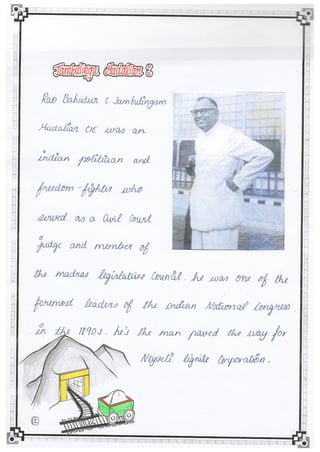 Jambulinga Mudaliar ?
Rao Bahadur C Jambulingam
Mudaliar CIE was an
indian politician and
freedom-fighter who
served as a Civil Court
judge and member of
the madras legislative Council. he was one of the
foremost leaders of the indian National Congress
in the 1890s. he's the man paved the way for
Neyveli lignite Corporation.